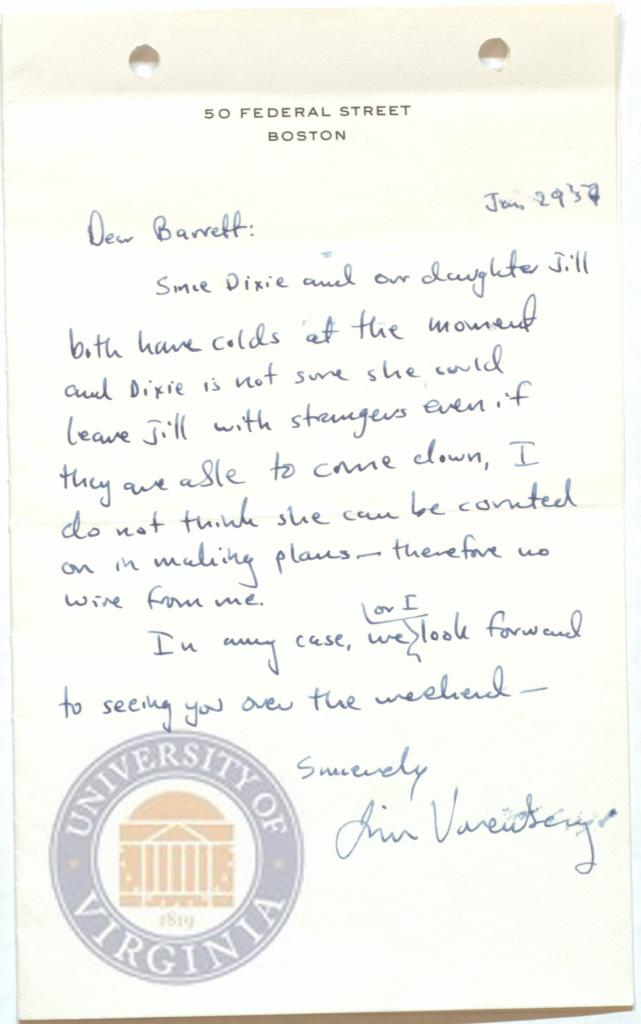 50 FEDERAL STREET
BOSTON
Jan 29 '57
Dear Barrett:
Since Dixie and our daughter Jill
both have colds at the moment
and Dixie is not sure she could
leave Jill with strangers even if
they are able to come down, I
do not think she can be counted
on in making plans — therefore no
wire from me.
In any case, we or I look forward
to seeing you over the weekend —
Sincerely
Jim Vorenberg
UNIVERSITY OF
VIRGINIA
1819